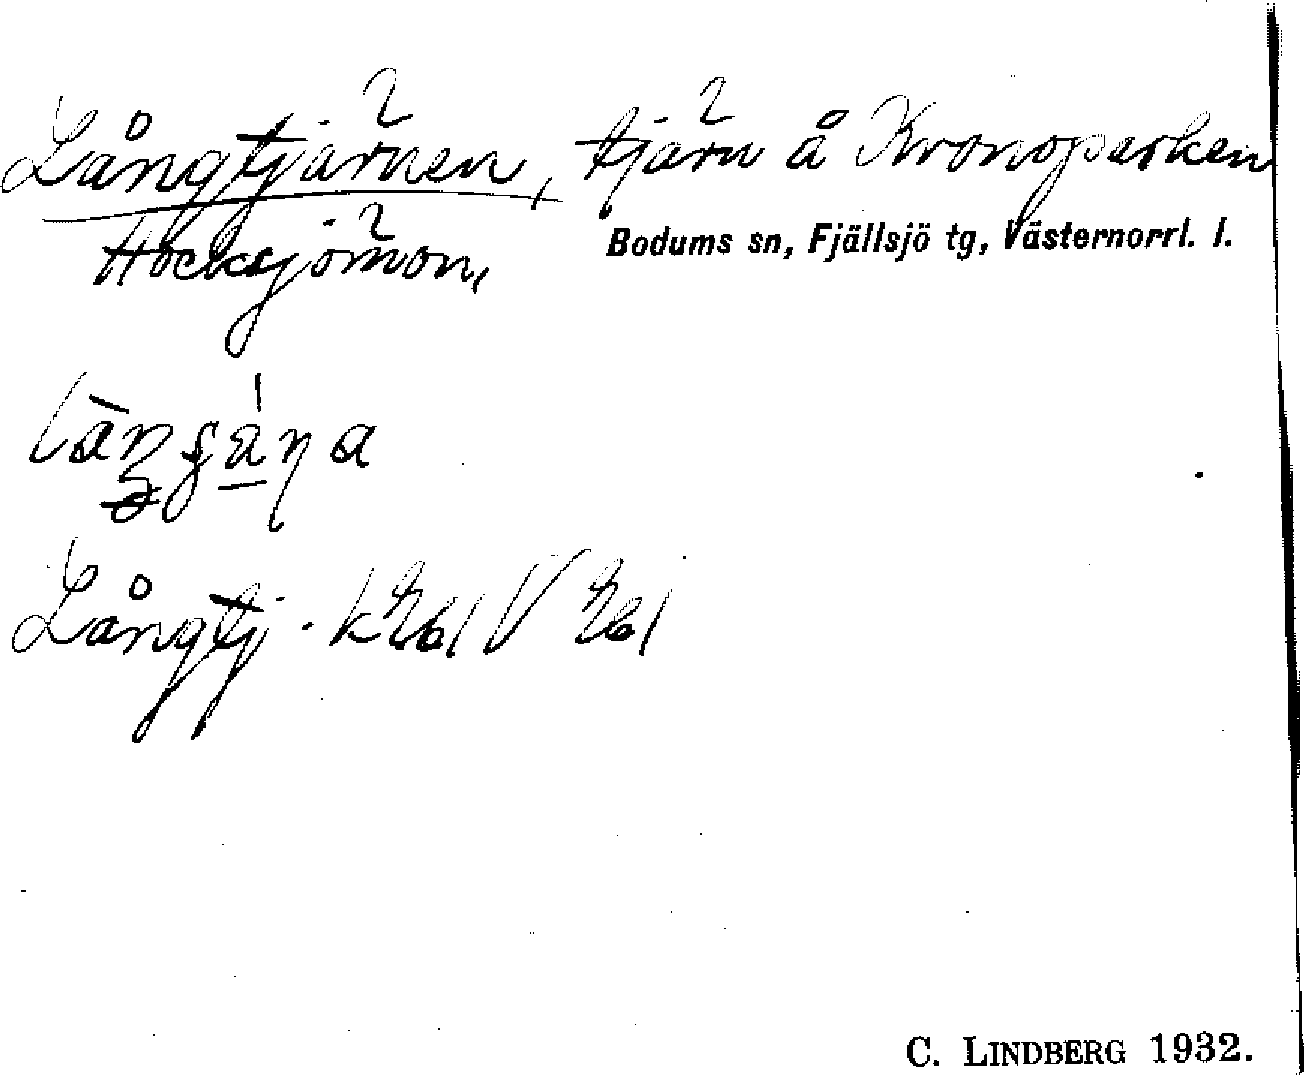 Långtjärnen, tjärn å Kronoparken
Hocksjömon, Bodums sn, Fjällsjö tg, Västernorrl. l.
Långtj.
C. LINDBERG 1932.